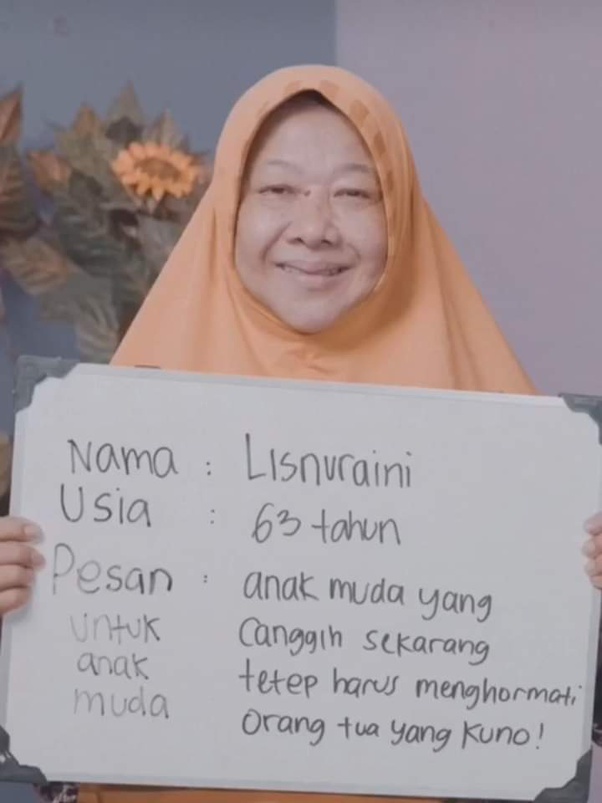 Nama : Lisnuraini
Usia : 63 tahun
Pesan : anak muda yang
untuk canggih sekarang
anak tetep harus menghormati
muda orang tua yang kuno!